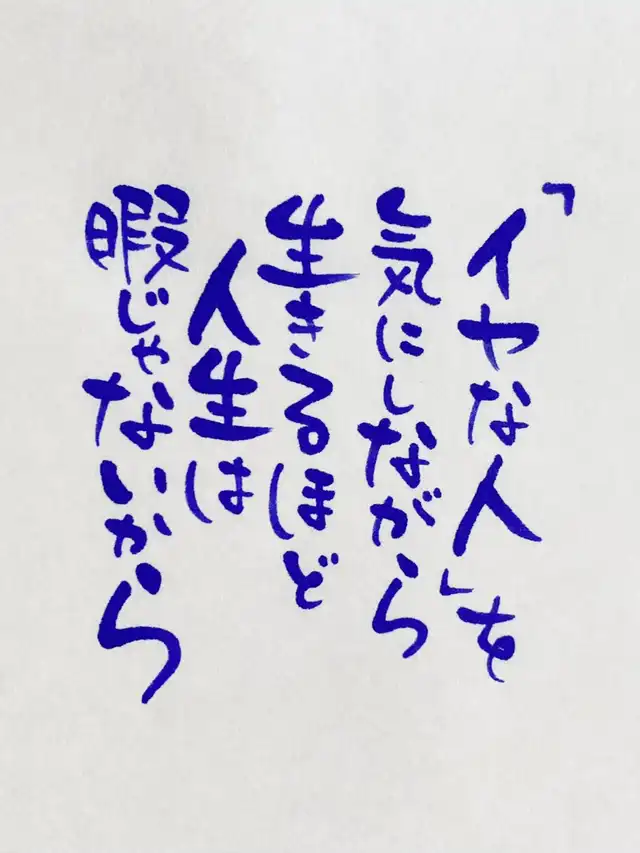 「イヤな人」を
気にしながら
生きるほど
人生は
暇じゃないから